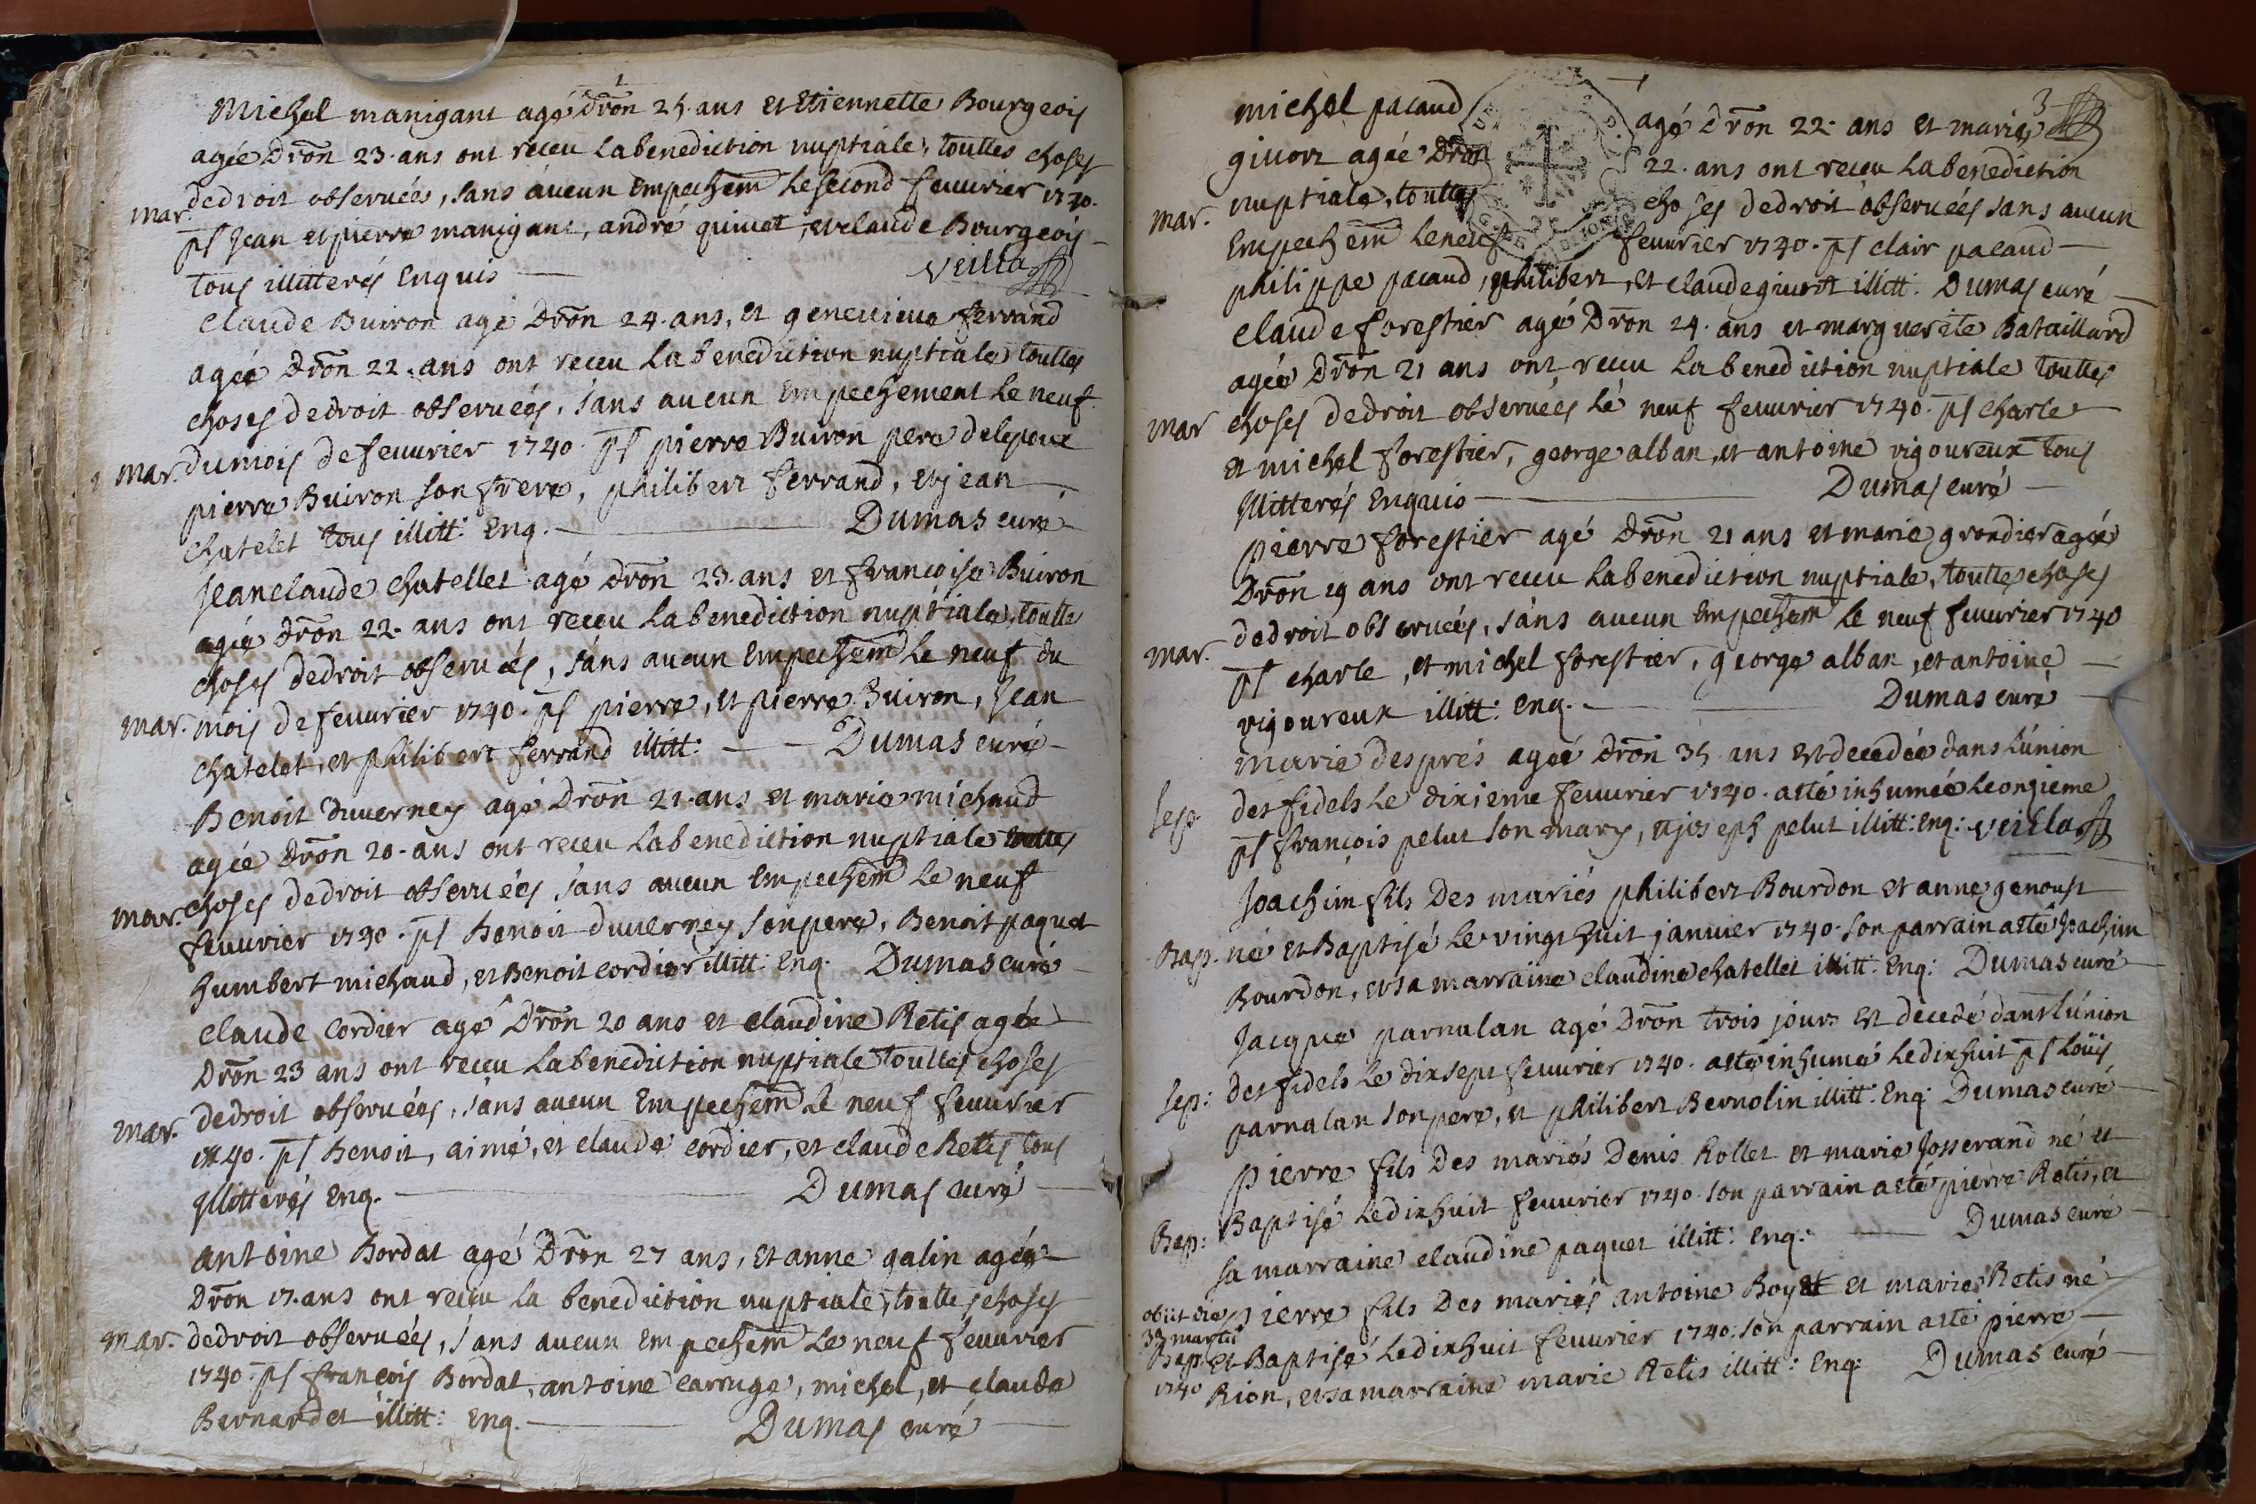 1
Michel manigant agé dron 25. ans et Etiennette Bourgeois
agée Dron 23. ans ont receu La benediction nuptiale, toutes choses
mar. de droit observées, sans aucun Empechem Le second fevurier 1740.
ps Jean et pierre manigant, andré quivet, et claude Bourgeois
tous illitterés Enquis — veilla
Claude Buiron agé Dron 24. ans, et genevieve ferrand
agée Dron 22. ans ont receu La benediction nuptiale toutes
choses de droit observées, sans aucun Empechement Le neuf
mar. du mois de fevurier 1740. ps pierre Buiron pere de lepoux
pierre Buiron son frere, philibert ferrand, et jean
chatelet tous illitt: Enq. — Dumas curé
Jean claude chatellet agé dron 25. ans et francoise Buiron
agée dron 22. ans ont receu La benediction nuptiale, toutte
choses de droit observées, sans aucun Empechem Le neuf du
mar. mois de fevurier 1740. ps pierre, et pierre Buiron, Jean
chatelet, et philibert ferrand illitt: — Dumas curé
Benoit Duverney agé Dron 21. ans et marie michaud
agée Dron 20. ans ont receu La benediction nuptiale toutes
mar. choses de droit observées, sans aucun Empechem Le neuf
fevurier 1740. ps Benoit duverney son pere, Benoit paquet
humbert michaud, et Benoit cordier illitt: Enq. Dumas curé
Claude Cordier agé Dron 20 ans et claudine Retis agée
Dron 23 ans ont receu La benediction nuptiale touttes choses
mar. de droit observées, sans aucun Empechem Le neuf fevurier
1740. ps Benoit, aimé, et claude cordier, et claude Retis tous
illitterés Enq. — Dumas curé
antoine Bordat agé Dron 27 ans, Et anne galin agée
Dron 17. ans ont receu La benediction nuptiale, touttes choses
mar. de droit observées, sans aucun Empechem Le neuf fevurier
1740. ps françois Bordat, antoine carruge, michel, et claude
Bernardet illitt: Enq. — Dumas curé
3
michel pacaud agé Dron 22. ans et marie
givort agée Dron 22. ans ont receu La benediction
mar. nuptiale, touttes choses de droit observées sans aucun
Empechem Le neuf fevurier 1740. ps clair pacaud —
philippe pacaud, philibert, et claude givort illitt: Dumas curé
claude forestier agé Dron 24. ans et marguerite Bataillard
agée Dron 21 ans ont receu La benediction nuptiale touttes
mar choses de droit observées Le neuf fevurier 1740. ps charle
et michel forestier, george alban, et antoine vigoureux tous
illitterés Enquis — Dumas curé
pierre forestier agé Dron 21 ans et marie grondier agée
Dron 19 ans ont receu La benediction nuptiale, touttes choses
mar. de droit observées, sans aucun Empechem Le neuf fevurier 1740
ps charle, et michel forestier, george alban, et antoine —
vigoureux illitt: Enq. — Dumas curé
marie després agée dron 35 ans est decedée dans L'union
sep. des fidels Le dixieme fevurier 1740. a été inhumée Le onzieme
ps françois pelut son mary, et joseph pelut illitt: Enq: veilla
Joachim fils Des mariés philibert Bourdon et anne genoust
Bap. né et Baptisé Le vingt huit janvier 1740. son parrain a été Joachim
Bourdon, et sa marraine claudine chatellet illitt: Enq: Dumas curé
Jacque parnalan agé Dron trois jours est decedé dans L'union
sep: des fidels Le dixsept fevurier 1740. a été inhumé Le dixhuit ps Loüis
parnalan son pere, et philibert Bernolin illitt: Enq: Dumas curé
pierre fils Des mariés Denis Rollet et marie Josserand né et
Bap: Baptisé Le dixhuit fevurier 1740. son parrain a été pierre Retis, et
sa marraine claudine paquet illitt: Enq: — Dumas curé
obiit die pierre fils Des mariés antoine Boyat et marie Retis né
martii
Bap. et Baptisé Le dixhuit fevurier 1740. son parrain a été pierre —
1740 Rion, et sa marraine marie Retis illitt: Enq: Dumas curé